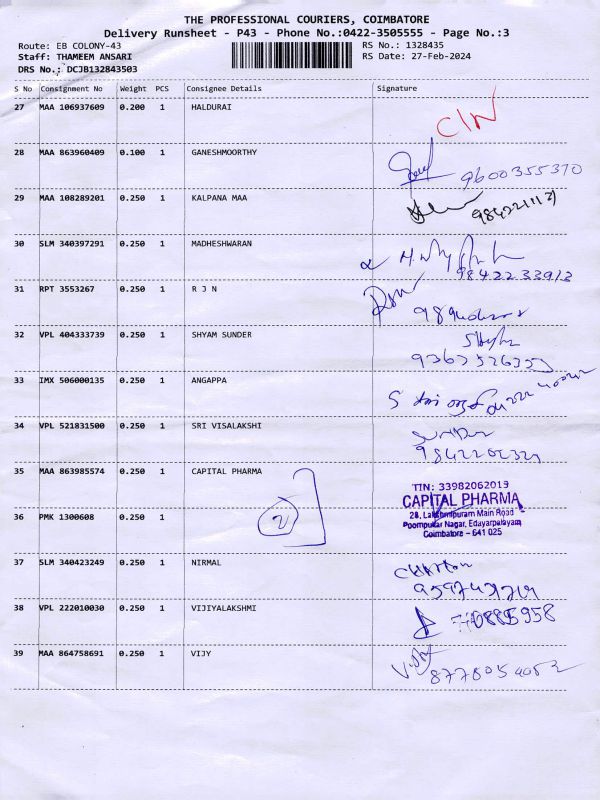 THE PROFESSIONAL COURIERS, COIMBATORE
Delivery Runsheet - P43 - Phone No.:0422-3505555 - Page No.:3
Route: EB COLONY-43 RS No.: 1328435
Staff: THAMEEM ANSARI RS Date: 27-Feb-2024
DRS No.: DCJB132843503
S No Consignment No Weight PCS Consignee Details Signature
27 MAA 106937609 0.200 1 HALDURAI
C/N
28 MAA 863960409 0.100 1 GANESHMOORTHY
9600355370
29 MAA 108289201 0.250 1 KALPANA MAA
30 SLM 340397291 0.250 1 MADHESHWARAN
9842233913
31 RPT 3553267 0.250 1 R J N
32 VPL 404333739 0.250 1 SHYAM SUNDER
33 IMX 506000135 0.250 1 ANGAPPA
34 VPL 521831500 0.250 1 SRI VISALAKSHI
35 MAA 863985574 0.250 1 CAPITAL PHARMA
TIN: 33982062019
CAPITAL PHARMA
28, Lakshmipuram Main Road
Poompukar Nagar, Edayarpalayam
Coimbatore - 641 025
36 PMK 1300608 0.250 1
2
37 SLM 340423249 0.250 1 NIRMAL
38 VPL 222010030 0.250 1 VIJIYALAKSHMI
39 MAA 864758691 0.250 1 VIJY